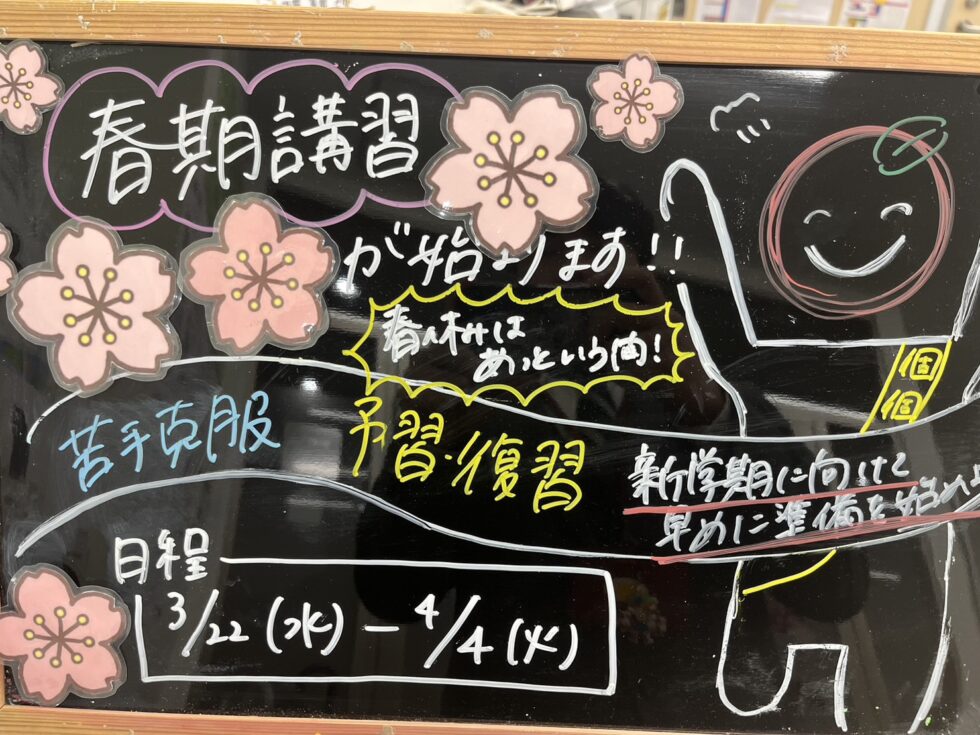 春期講習
が始まります!!
春休みは
あっという間!
苦手克服
予習・復習
新学期に向けて
早めに準備を始め
個
個
日程
3/22(水)-4/4(火)